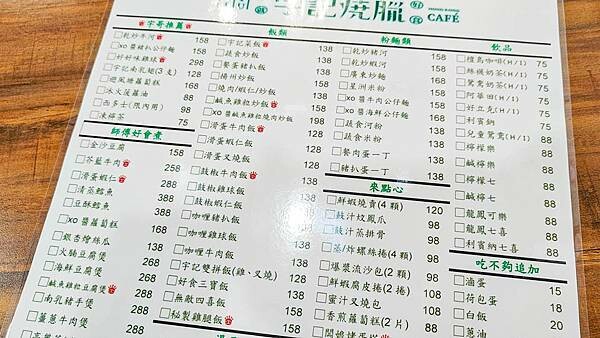 宇記燒臘
CAFÉ
宇哥推薦
乾炒牛河 158
xo醬豬扒公仔麵 158
好好味雞翼
宇記南乳翅(3支) 128
避風塘蘿蔔糕 168
冰火菠蘿油 88
西多士(限內用) 98
凍檸茶 75
師傅好會煮
金沙豆腐 158
芥藍牛肉 258
滑蛋蝦仁 288
清蒸鱈魚 388
豆酥鱈魚 388
xo醬蘿蔔糕 168
銀杏燴絲瓜 168
火腩豆腐煲 268
海鮮豆腐煲 268
鹹魚雞粒豆腐煲
南乳豬手煲 288
薑蔥牛肉煲 288
飯類
宇記菜飯
蔬食炒飯
餐蛋豬扒飯
揚州炒飯
燒肉/蝦仁/炒飯
鹹魚雞粒炒飯
xo醬鹹魚雞粒燒肉炒飯
滑蛋牛肉飯
滑蛋蝦仁飯 138
滑蛋叉燒飯 138
豉椒牛肉飯
豉椒雞球飯 138
豉椒蝦仁飯 138
咖喱豬扒飯 138
咖喱雞球飯 138
咖喱牛肉飯 138
宇記雙拼飯(雞、叉燒) 128
好食三寶飯 138
無敵四喜飯 158
秘製雞腿飯 158
粉麵類
乾炒豬河 158
乾炒蝦河 158
廣東炒麵 158
星洲米粉 158
xo醬牛肉公仔麵 158
xo醬海鮮公仔麵 158
蔬食河粉 138
蔬食米粉 138
餐肉蛋一丁 138
豬扒蛋一丁 138
來點心
鮮蝦燒賣(4顆) 120
豉汁炆鳳爪 98
豉汁蒸排骨 98
蒸/炸螺絲捲(4顆) 98
爆漿流沙包(2顆) 98
鮮蝦腐皮捲(2捲) 108
蜜汁叉燒包 108
香煎蘿蔔糕(2片) 88
飲品
檀島咖啡(H/I) 75
絲襪奶茶(H/I) 75
鴛鴦奶茶(H/I) 75
阿華田(H/I) 75
好立克(H/I) 75
利賓納 75
兒童鴛鴦(H/I) 88
檸檬樂 88
鹹檸樂 88
檸檬七 88
鹹檸七 88
龍鳳可樂 88
龍鳳七喜 88
利賓納七喜 88
吃不夠追加
滷蛋 15
荷包蛋 18
白飯 20
蔥油